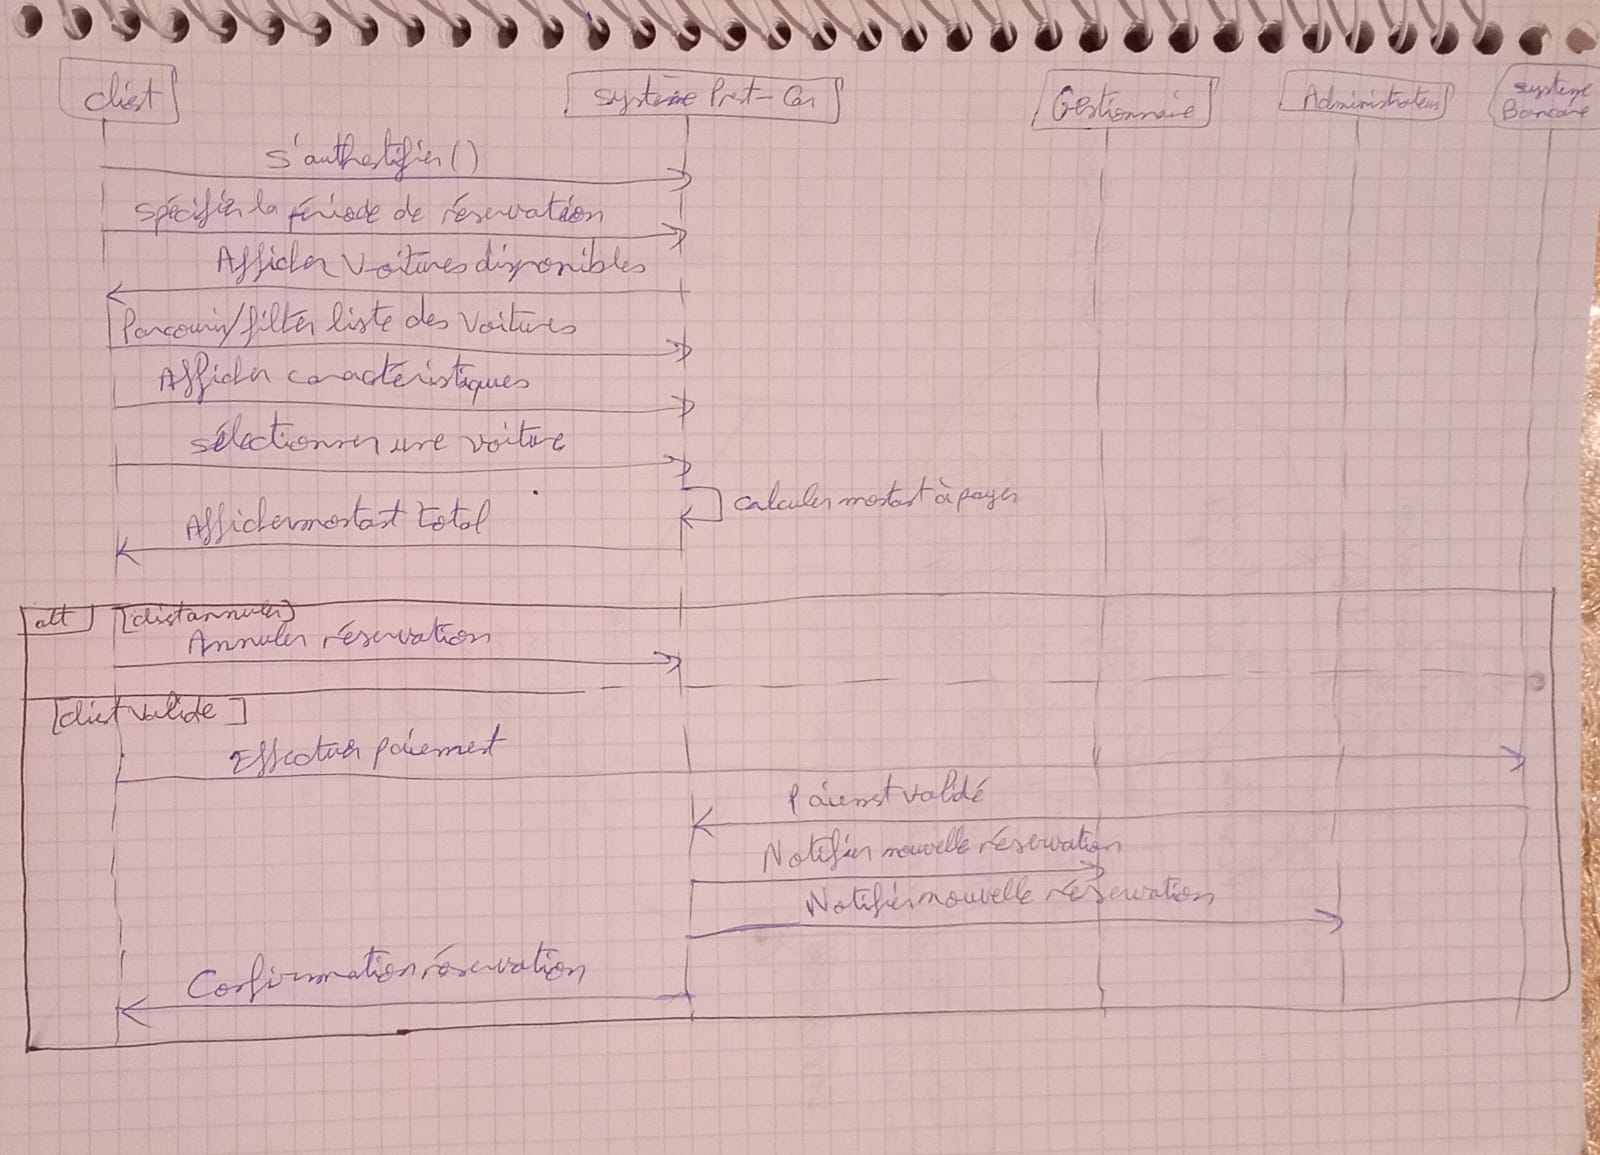 client
système Prest-Car
Gestionnaire
Administrateur
système
Bancaire
s'authentifier()
spécifier la période de réservation
Afficher Voitures disponibles
Parcourir/filter liste des Voitures
Afficher caractéristiques
sélectionner une voiture
calculer montant à payer
Afficher montant total
alt [client annuler]
Annuler réservation
[client valide]
Effectuer paiement
Paiemnt validé
Notifier nouvelle réservation
Notifier nouvelle réservation
Confirmation réservation